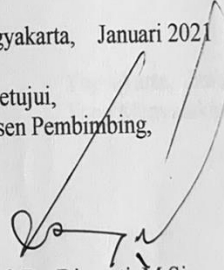 gyakarta, Januari 2021
etujui,
sen Pembimbing,